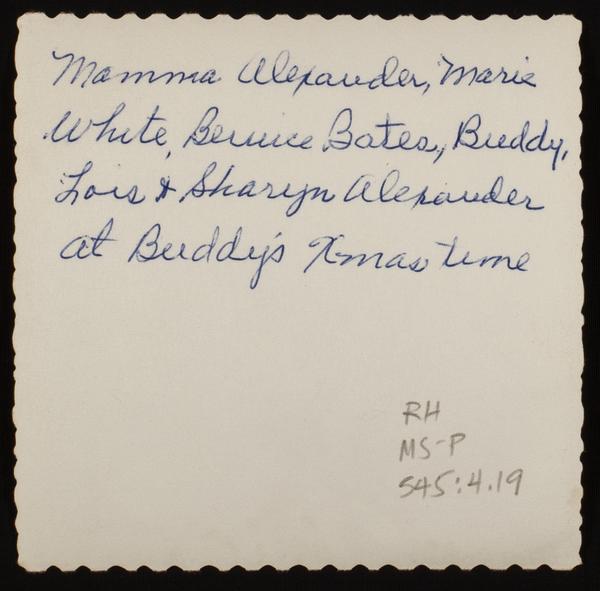 Mamma Alexander, Marie
White, Bernice Bates, Buddy,
Lois & Sharyn Alexander
at Buddy's Xmas time
RH
MS-P
545:4.19